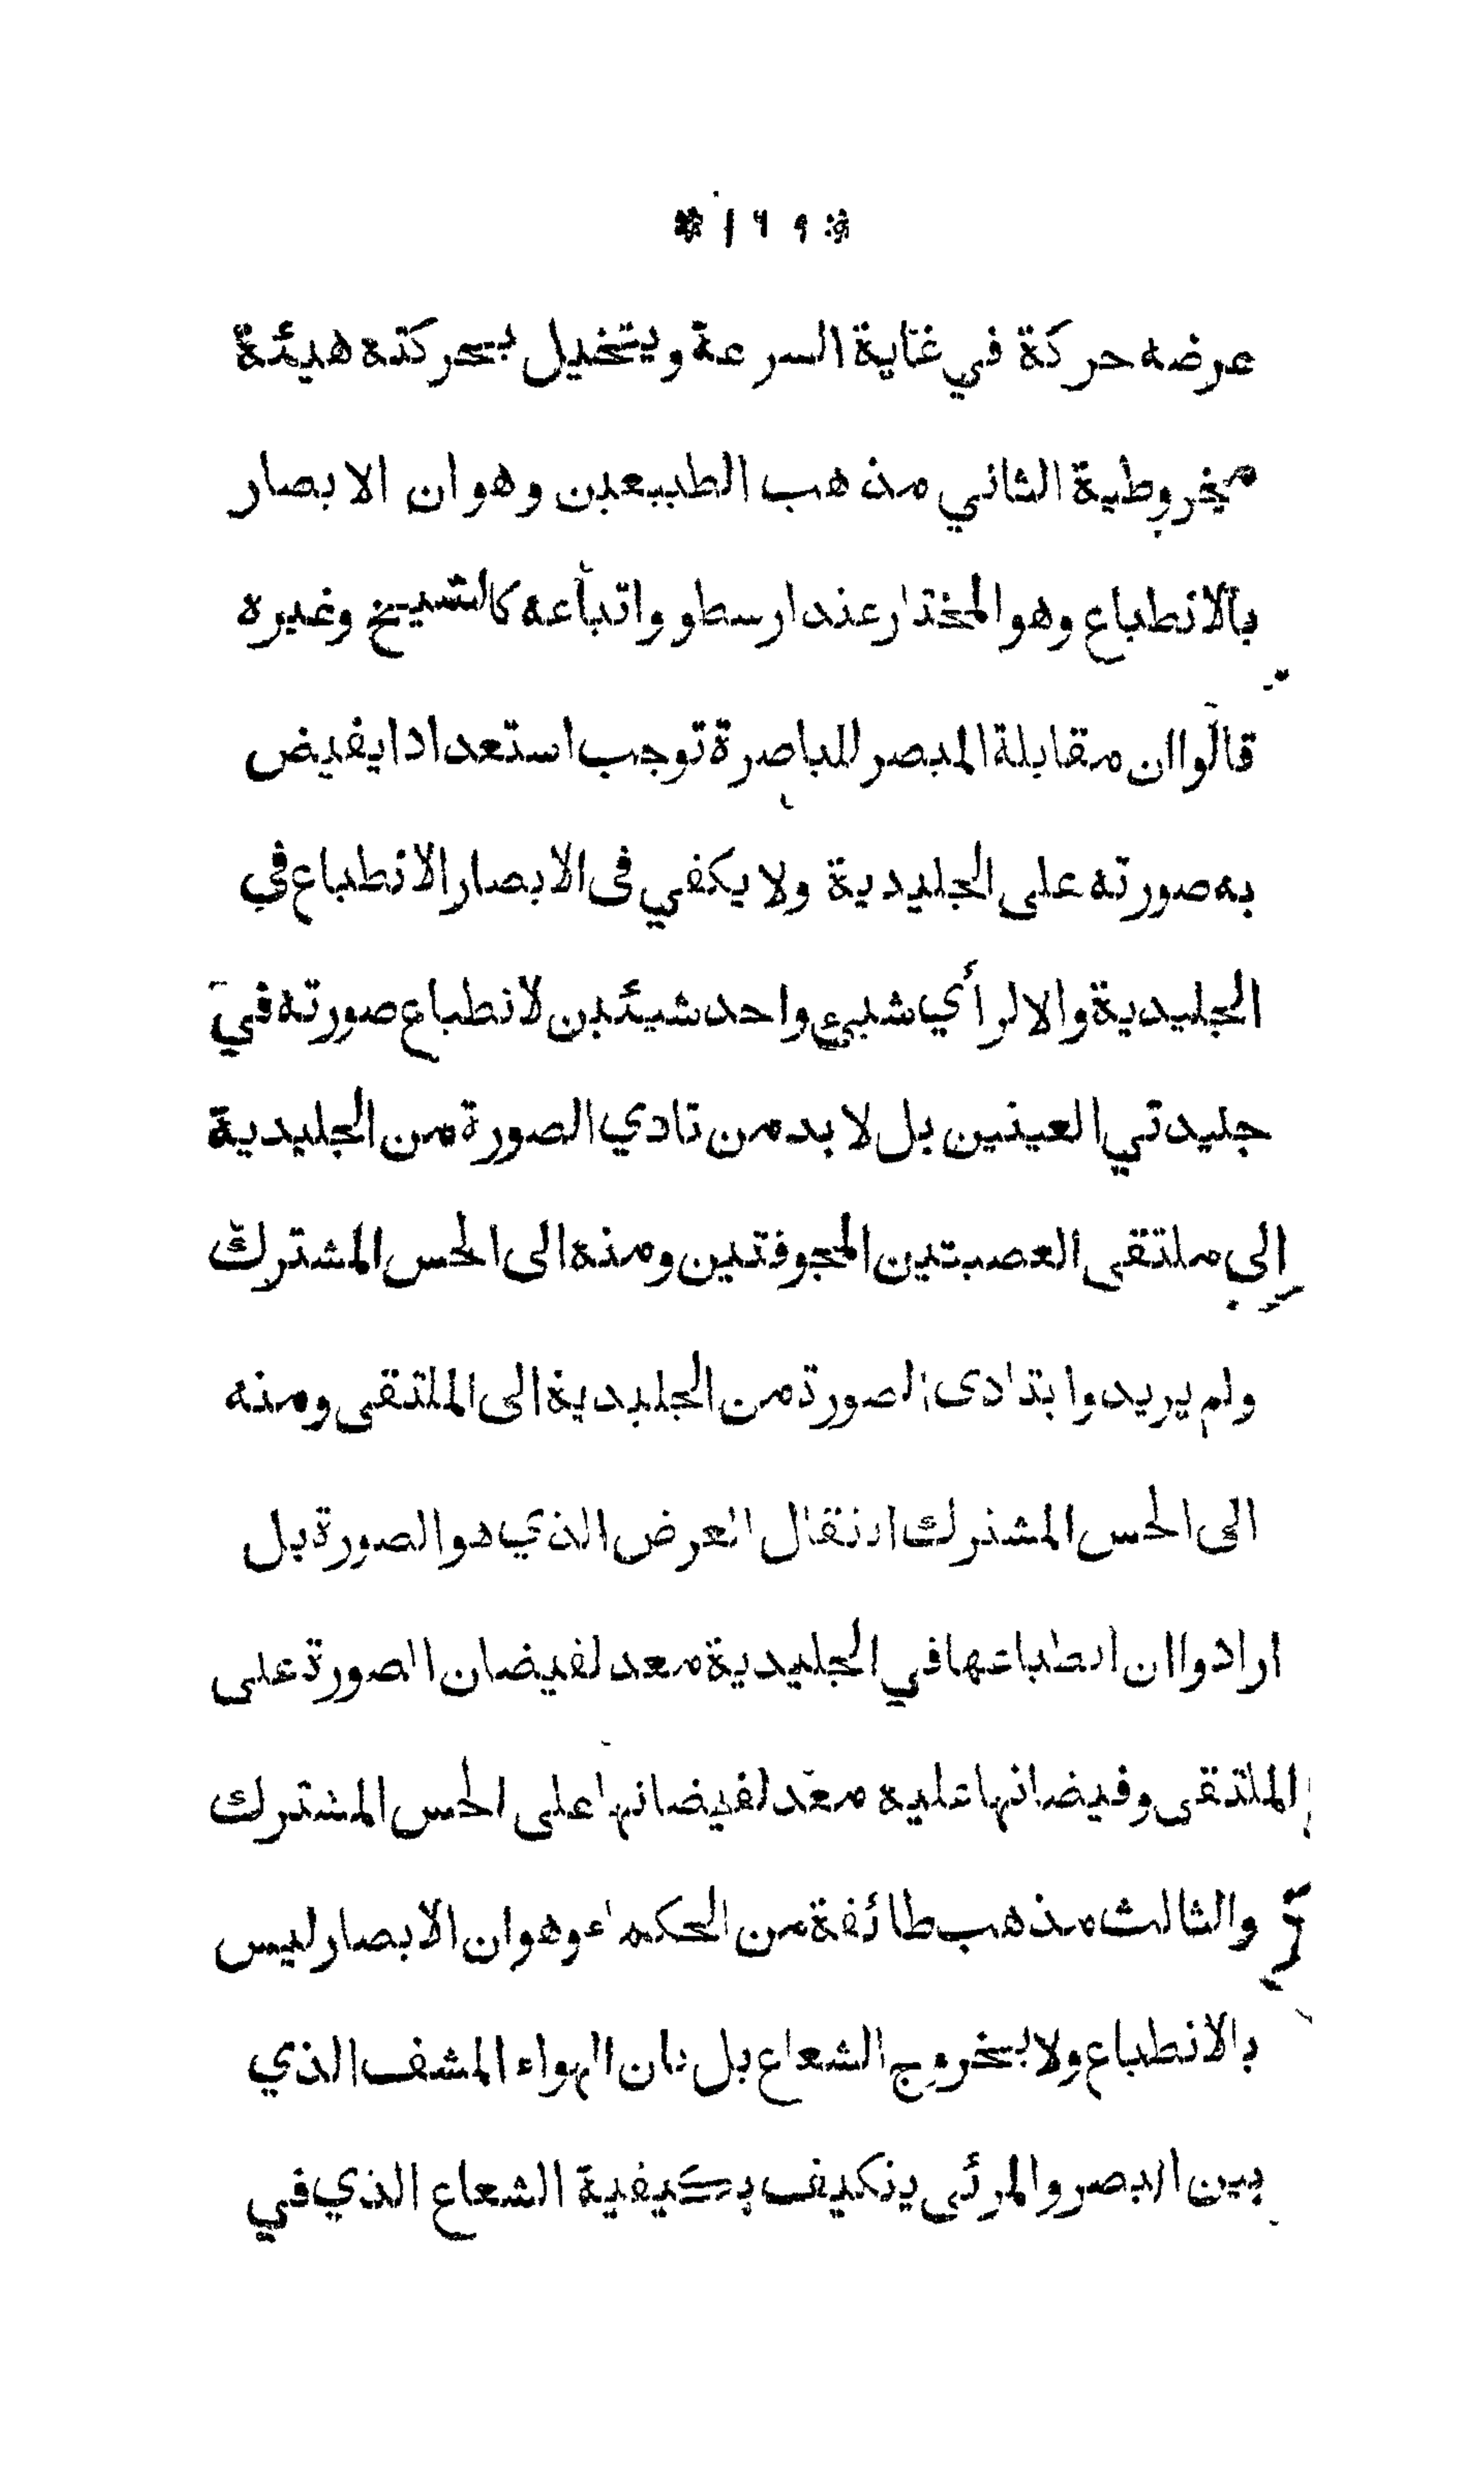 * ١٦٩ *
عرضه حركة في غاية السرعة ويتخيل بحركته هيئة
مخروطية الثاني مذهب الطبيعين وهو ان الابصار
بالانطباع وهو المختار عند ارسطو واتباعه كالشيخ وغيره
قالوا ان مقابلة المبصر للباصرة توجب استعدادا يفيض
به صورته على الجليدية ولا يكفي فى الابصار الانطباع في
الجليدية والا لرأي شيئ واحد شيئين لانطباع صورته في
جليدتي العينين بل لا بد من تادي الصورة من الجليدية
إلى ملتقى العصبتين المجوفتين ومنه الى الحس المشترك
ولم يريدوا بتادى الصورة من الجليدية الى الملتقى ومنه
الى الحس المشترك انتقال العرض الذي هو الصورة بل
ارادوا ان انطباعها في الجليدية معد لفيضان الصورة على
الملتقى وفيضانها عليه معد لفيضانها على الحس المشترك
والثالث مذهب طائفة من الحكماء وهو ان الابصار ليس
بالانطباع ولا بخروج الشعاع بل بان الهواء المشف الذي
بين البصر والمرئى يتكيف بكيفية الشعاع الذي في